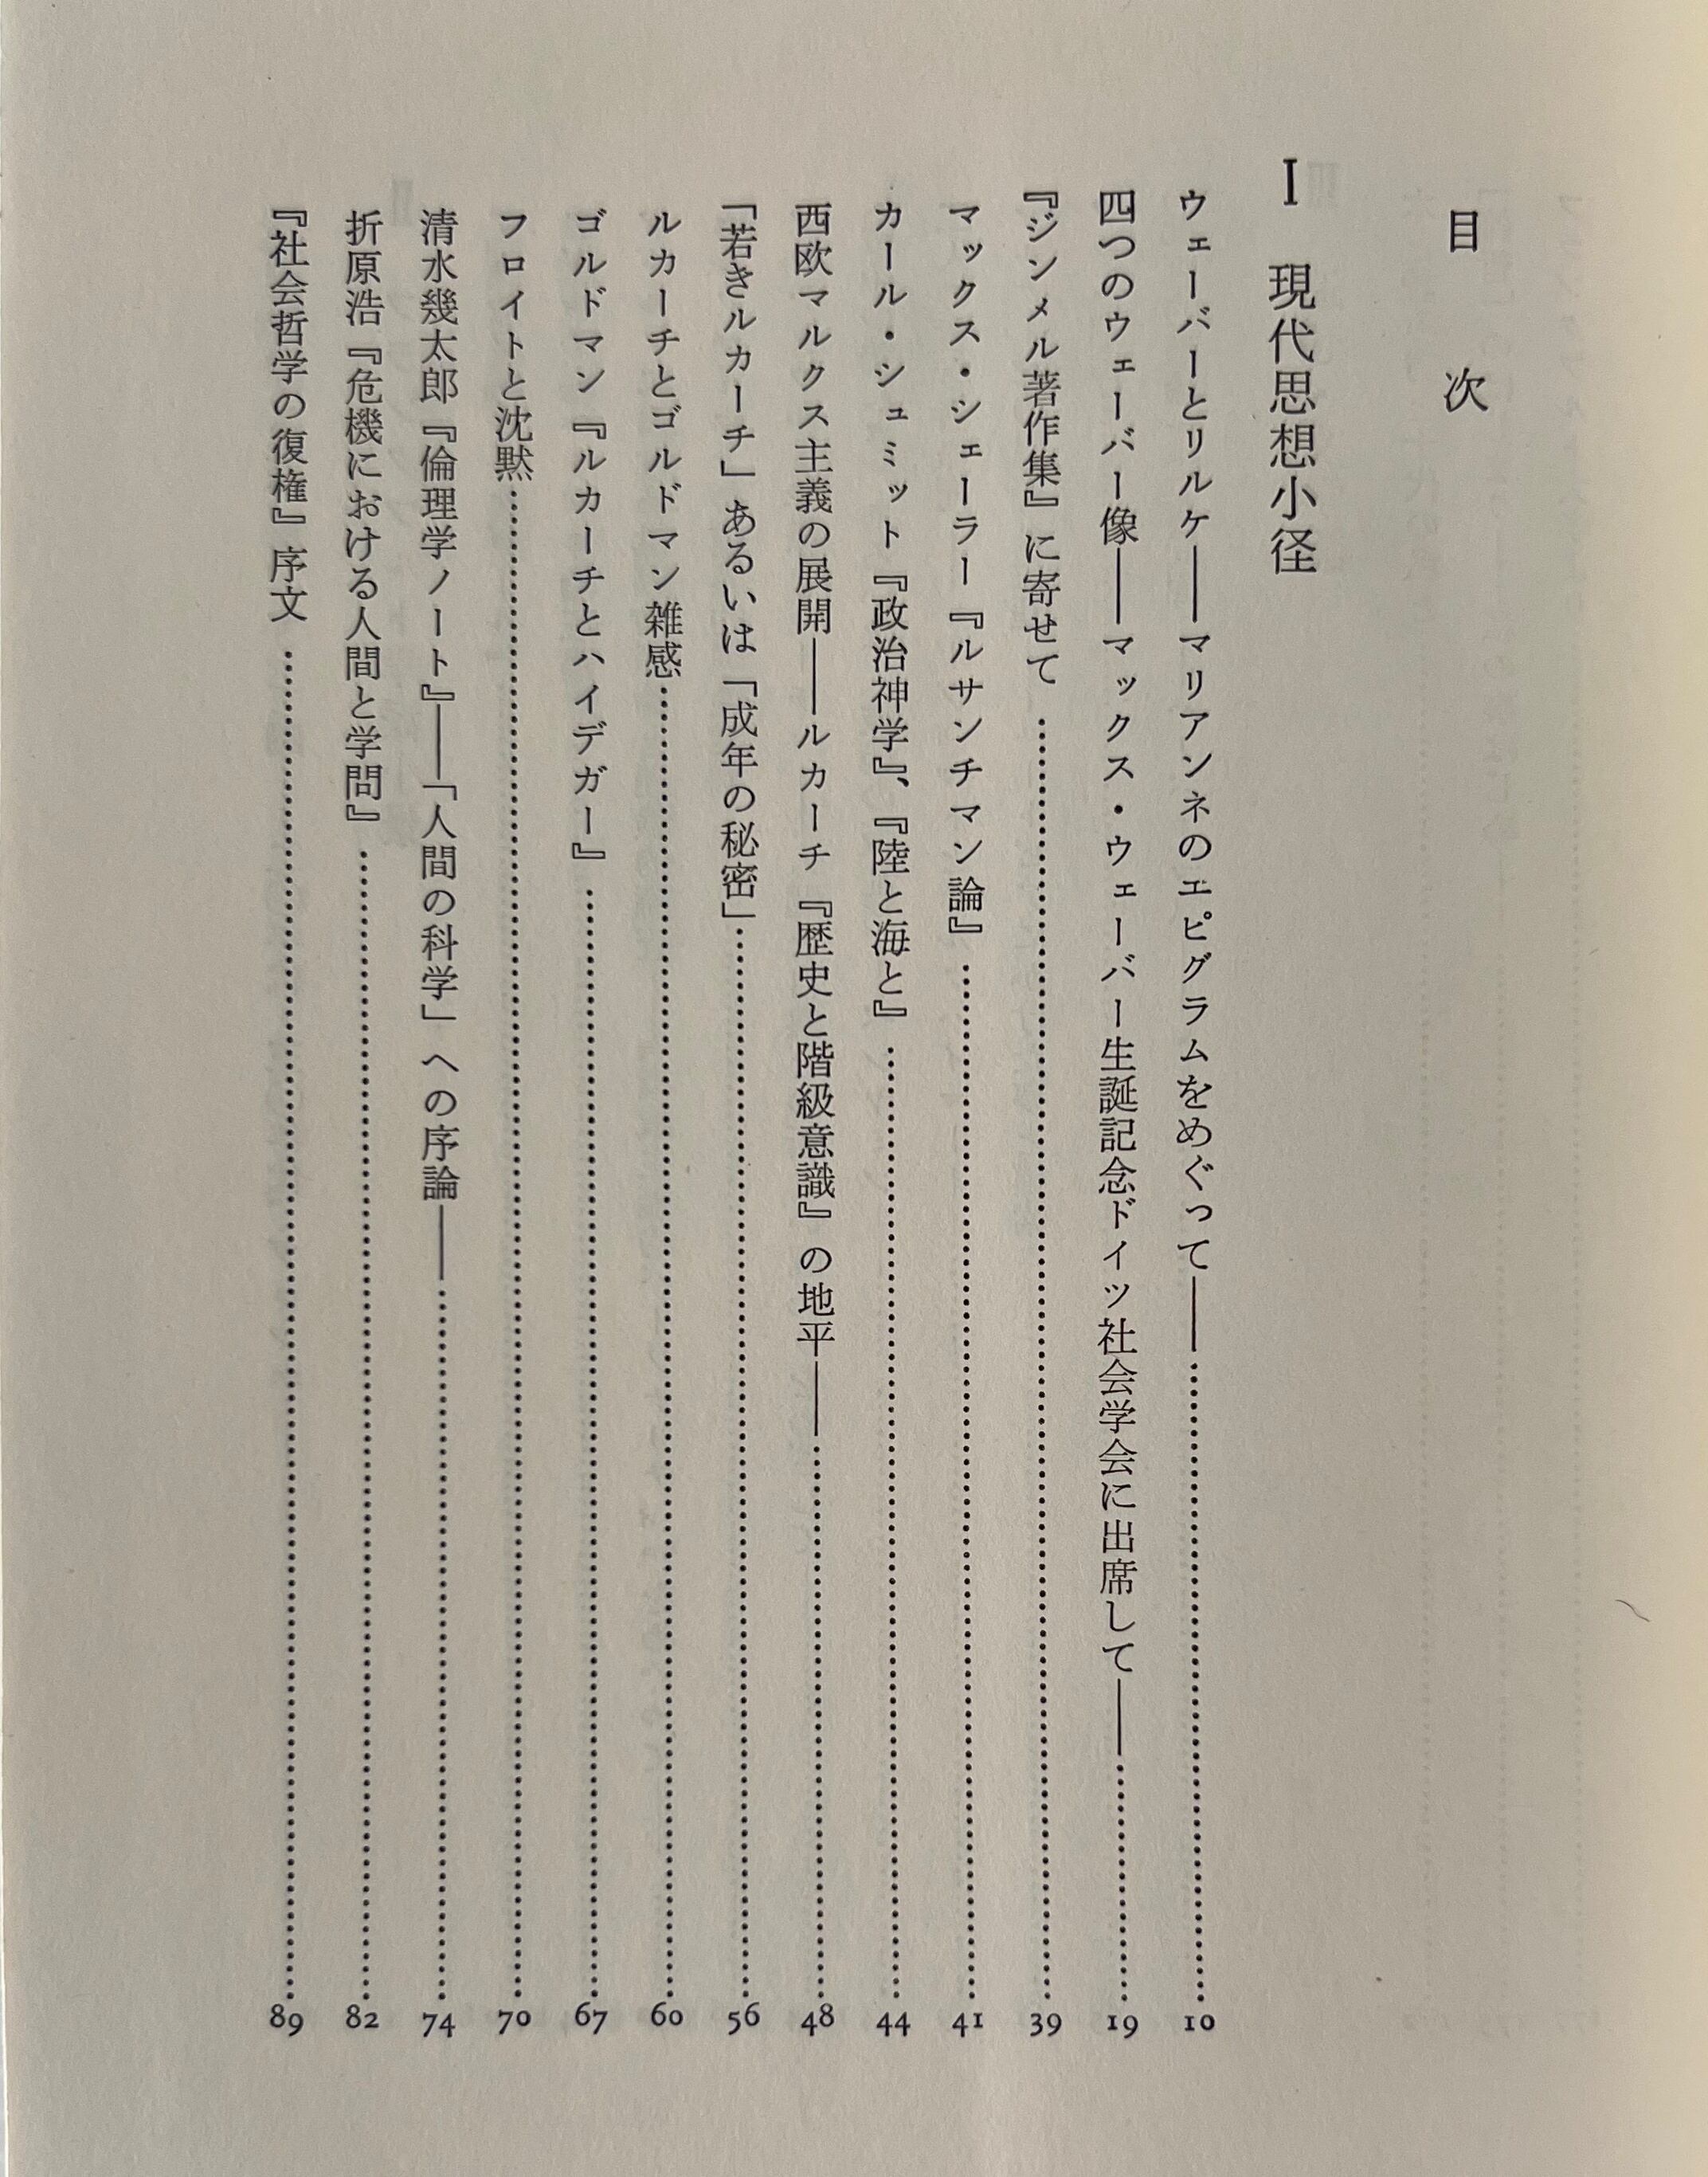 目次
I 現代思想小径
ウェーバーとリルケ――マリアンネのエピグラムをめぐって――……………10
四つのウェーバー像――マックス・ウェーバー生誕記念ドイツ社会学会に出席して――……………19
『ジンメル著作集』に寄せて……………39
マックス・シェーラー『ルサンチマン論』……………41
カール・シュミット『政治神学』、『陸と海と』……………44
西欧マルクス主義の展開――ルカーチ『歴史と階級意識』の地平――……………48
「若きルカーチ」あるいは「成年の秘密」……………56
ルカーチとゴルドマン雑感……………60
ゴルドマン『ルカーチとハイデガー』……………67
フロイトと沈黙……………70
清水幾太郎『倫理学ノート』――「人間の科学」への序論――……………74
折原浩『危機における人間と学問』……………82
『社会哲学の復権』序文……………89